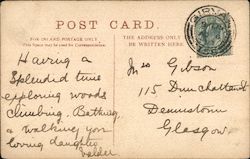 POST CARD
FOR INLAND POSTAGE ONLY
This Space may be used for Correspondence
THE ADDRESS ONLY TO
BE WRITTEN HERE
Having a
Splendid time
exploring woods
climbing. Bathing
& walking your
loving daughter
Mrs Gibson
115 Dunchattan St
Dennistoun
Glasgow.